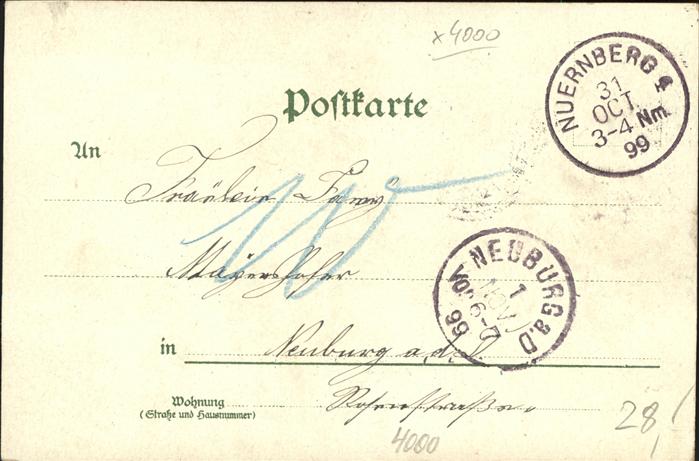 x4000
NUERNBERG 4
31
OCT.
3-4 Nm.
99
Postkarte
An
Fräulein Fanny
Mayershofer
NEUBURG a. D
1
NOV
Vor. 6-7
99
in Neuburg a. d. D
Wohnung
(Straße und Hausnummer)
Rosenstraße
28,
4000